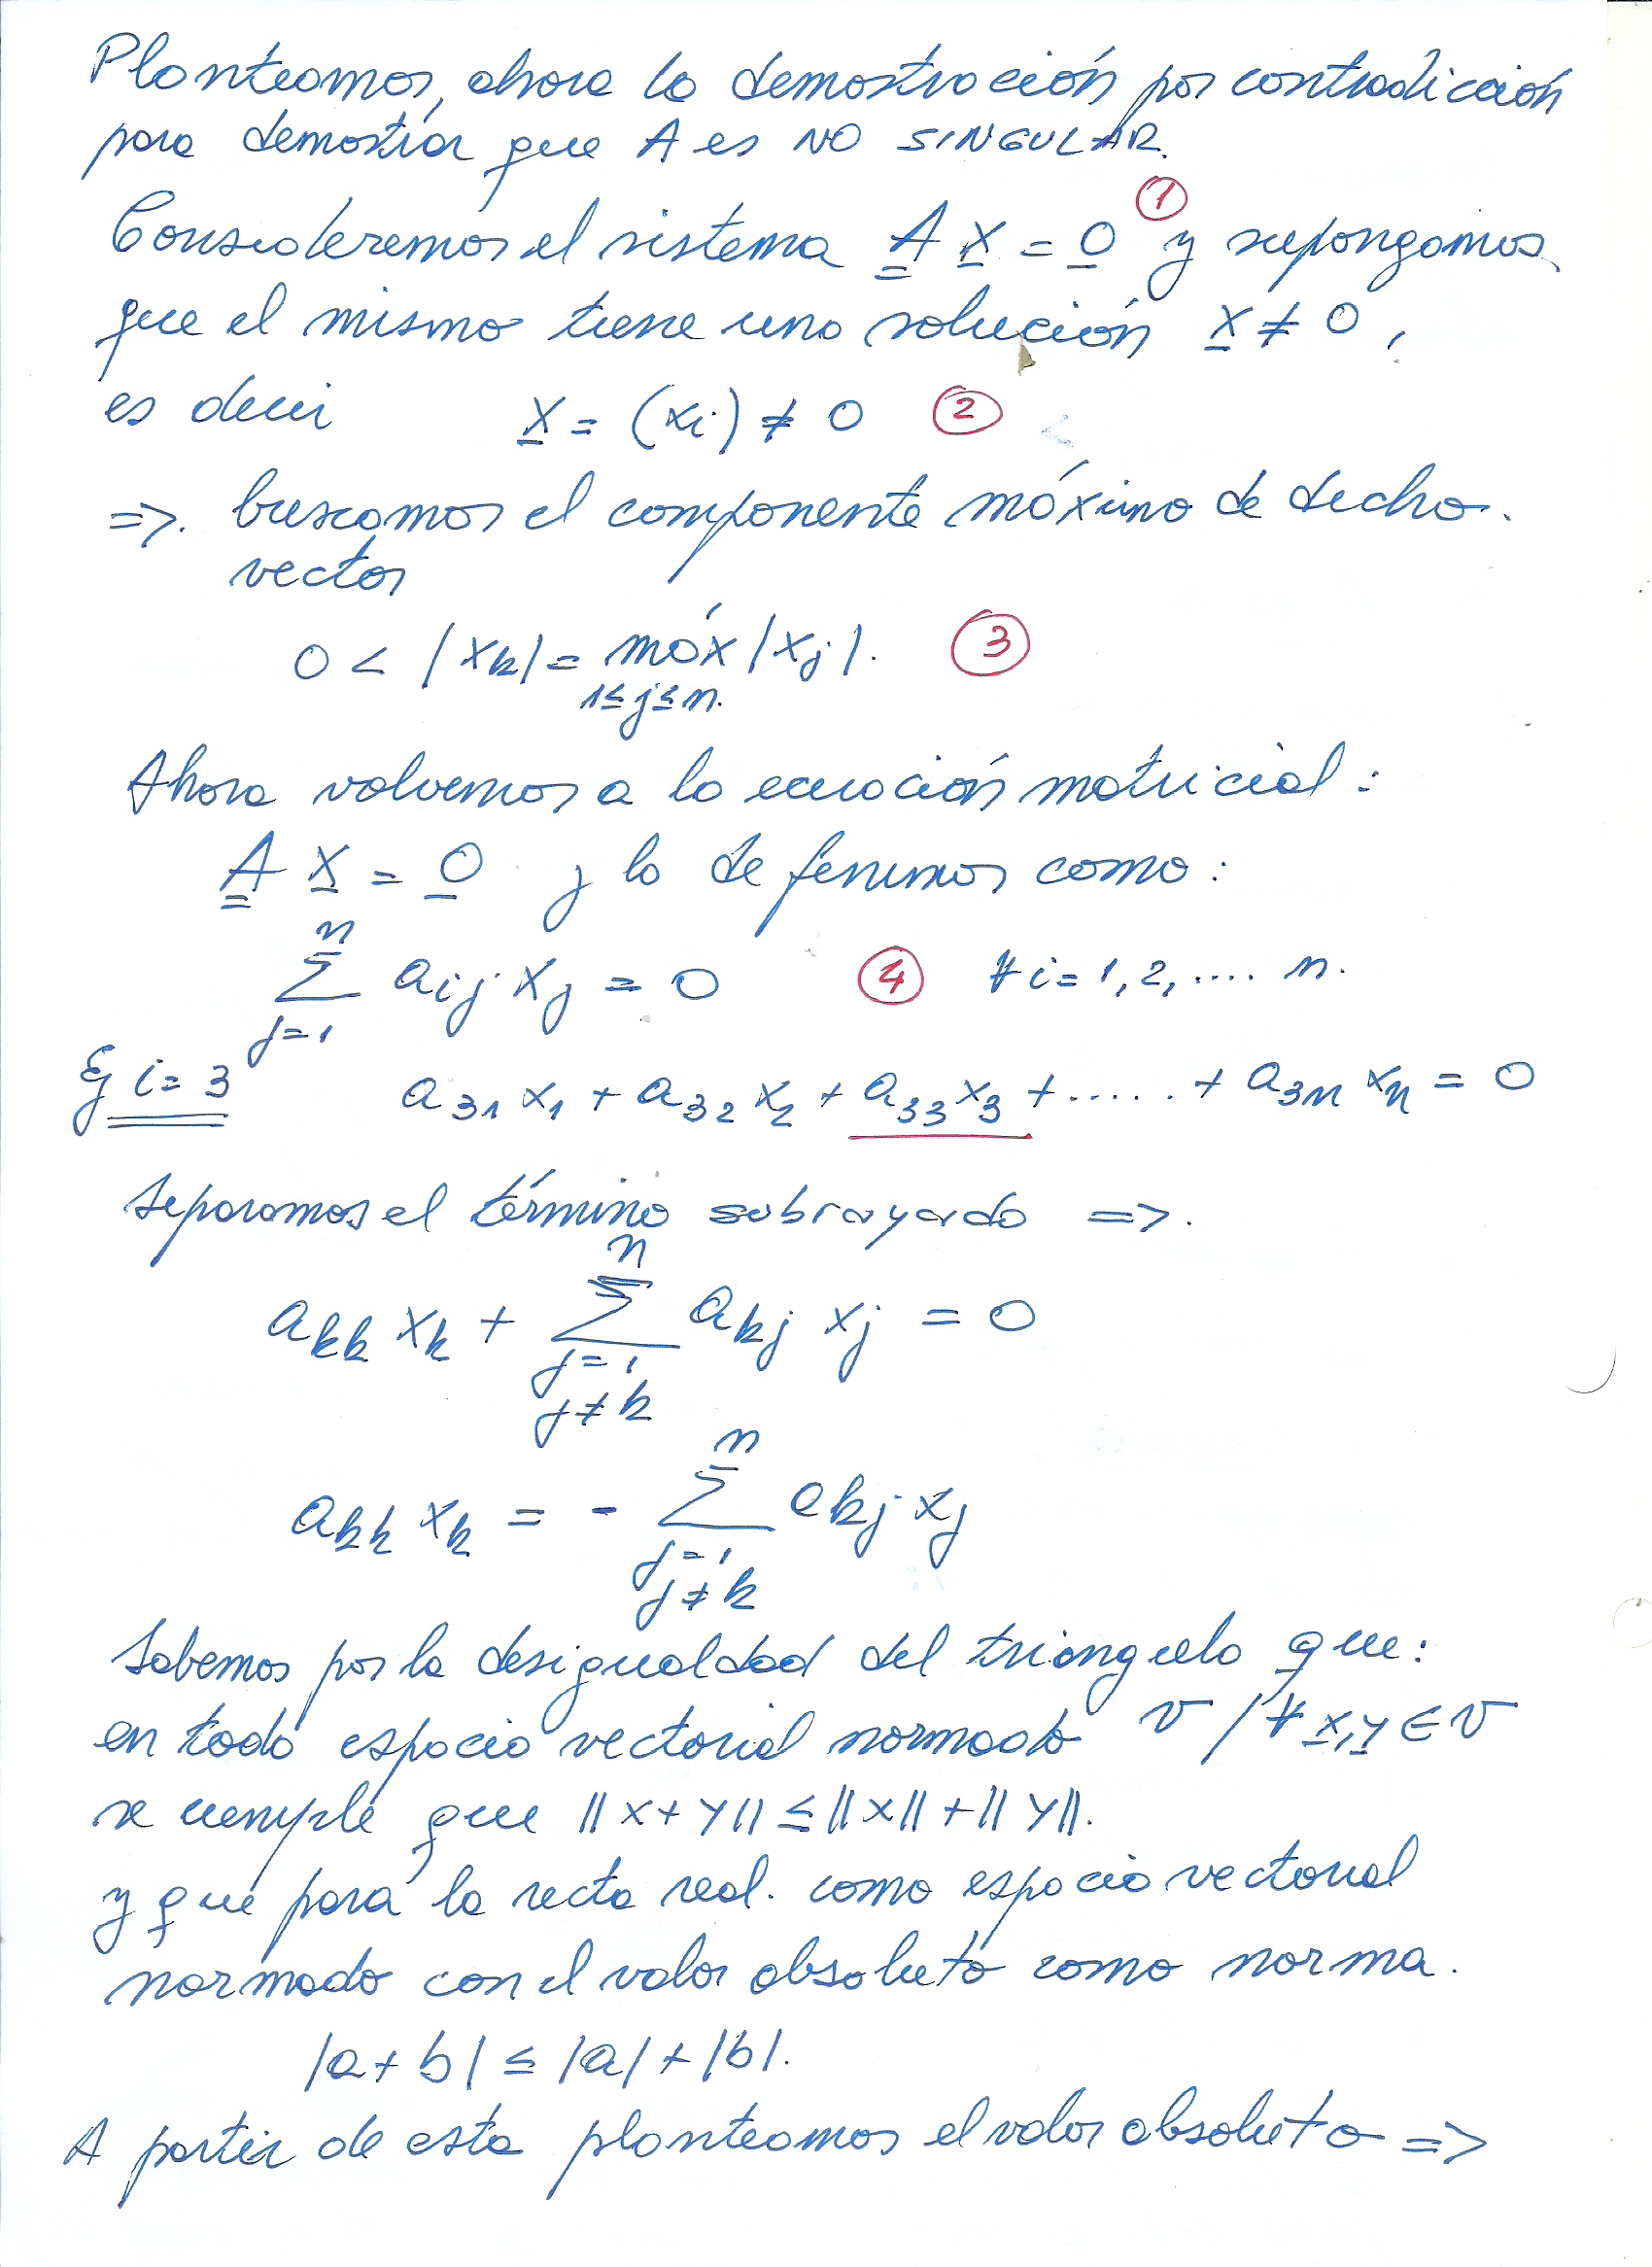 Planteamos, ahora la demostración por contradicción
para demostrar que A es NO SINGULAR.
Consideremos el sistema A x = 0 ① y supongamos
que el mismo tiene una solución x ≠ 0,
es decir x = (xi) ≠ 0 ②
=> buscamos el componente máximo de dicho
vector
0 < |xk| = máx |xj|. ③
1≤j≤n.
Ahora volvemos a la ecuación matricial:
A x = 0 y la definimos como:
n
∑ aij xj = 0 ④ ∀ i = 1, 2, .... n.
j=1
Ej i = 3 a31 x1 + a32 x2 + a33 x3 + ..... + a3n xn = 0
Separamos el término subrayado =>.
n
akk xk + ∑ akj xj = 0
j=1
j≠k
n
akk xk = - ∑ akj xj
j=1
j≠k
Sabemos por la desigualdad del triángulo que:
en todo espacio vectorial normado V / ∀ x, y ∈ V
se cumple que ||x + y|| ≤ ||x|| + ||y||.
y que para la recta real. como espacio vectorial
normado con el valor absoluto como norma.
|a + b| ≤ |a| + |b|.
A partir de esta planteamos el valor absoluto =>